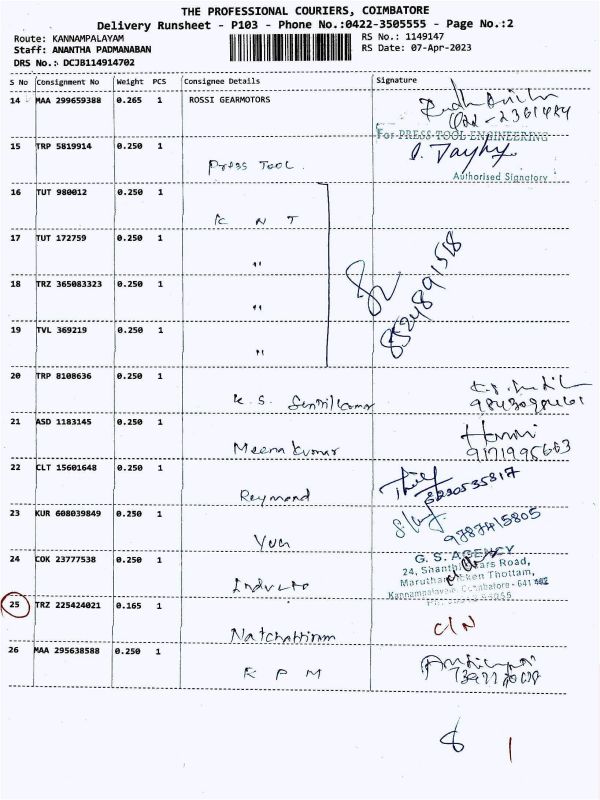 THE PROFESSIONAL COURIERS, COIMBATORE
Delivery Runsheet - P103 - Phone No.:0422-3505555 - Page No.:2
Route: KANNAMPALAYAM
Staff: ANANTHA PADMANABAN
DRS No.: DCJB114914702
RS No.: 1149147
RS Date: 07-Apr-2023
S No Consignment No Weight PCS Consignee Details Signature
14 MAA 299659388 0.265 1 ROSSI GEARMOTORS
For PRESS TOOL ENGINEERING
15 TRP 5819914 0.250 1
Press Tool.
Authorised Signatory
16 TUT 980012 0.250 1
K N T
17 TUT 172759 0.250 1
"
18 TRZ 365083323 0.250 1
"
8524891518
19 TVL 369219 0.250 1
"
20 TRP 8108636 0.250 1
K. S. Senthilkumar
21 ASD 1183145 0.250 1
Meena Kumar
9171995663
22 CLT 15601648 0.250 1
Raymond
8220535817
23 KUR 608039849 0.250 1
9787415805
24 COK 23777538 0.250 1
G. S. AGENCY
24, Shanthi Road,
Thottam,
Kannampalayam, Coimbatore - 641 402
25 TRZ 225424021 0.165 1
C/N
26 MAA 295638588 0.250 1
K P M
8 1